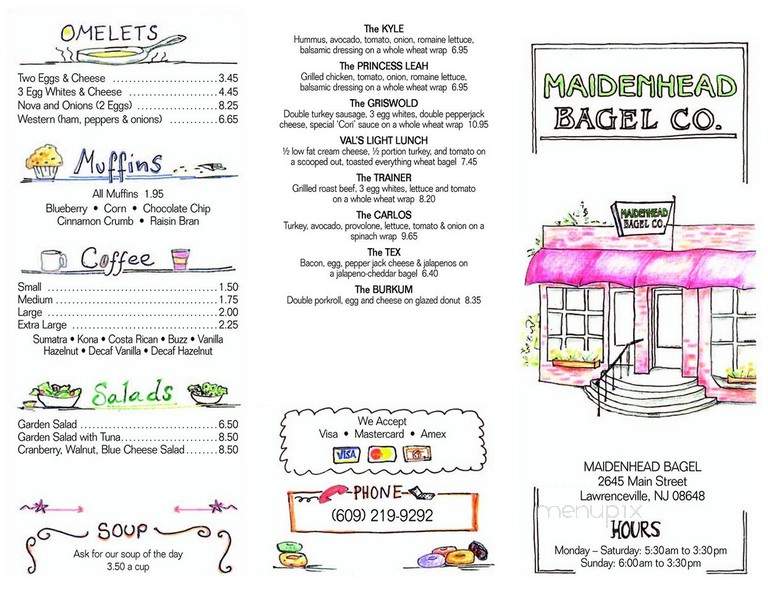 OMELETS
Two Eggs & Cheese ........................ 3.45
3 Egg Whites & Cheese ..................... 4.45
Nova and Onions (2 Eggs) .................. 8.25
Western (ham, peppers & onions) ........... 6.65
Muffins
All Muffins 1.95
Blueberry • Corn • Chocolate Chip
Cinnamon Crumb • Raisin Bran
Coffee
Small ........................................ 1.50
Medium ....................................... 1.75
Large ........................................ 2.00
Extra Large .................................. 2.25
Sumatra • Kona • Costa Rican • Buzz • Vanilla
Hazelnut • Decaf Vanilla • Decaf Hazelnut
Salads
Garden Salad ................................. 6.50
Garden Salad with Tuna ....................... 8.50
Cranberry, Walnut, Blue Cheese Salad ........ 8.50
SOUP
Ask for our soup of the day
3.50 a cup
The KYLE
Hummus, avocado, tomato, onion, romaine lettuce,
balsamic dressing on a whole wheat wrap 6.95
The PRINCESS LEAH
Grilled chicken, tomato, onion, romaine lettuce,
balsamic dressing on a whole wheat wrap 6.95
The GRISWOLD
Double turkey sausage, 3 egg whites, double pepperjack
cheese, special 'Cori' sauce on a whole wheat wrap 10.95
VAL'S LIGHT LUNCH
½ low fat cream cheese, ½ portion turkey, and tomato on
a scooped out, toasted everything wheat bagel 7.45
The TRAINER
Grilled roast beef, 3 egg whites, lettuce and tomato
on a whole wheat wrap 8.20
The CARLOS
Turkey, avocado, provolone, lettuce, tomato & onion on a
spinach wrap 9.65
The TEX
Bacon, egg, pepper jack cheese & jalapenos on
a jalapeno-cheddar bagel 6.40
The BURKUM
Double porkroll, egg and cheese on glazed donut 8.35
We Accept
Visa • Mastercard • Amex
VISA
PHONE
(609) 219-9292
MAIDENHEAD
BAGEL CO.
MAIDENHEAD
BAGEL CO.
MAIDENHEAD BAGEL
2645 Main Street
Lawrenceville, NJ 08648
menupix
HOURS
Monday – Saturday: 5:30 am to 3:30 pm
Sunday: 6:00 am to 3:30 pm